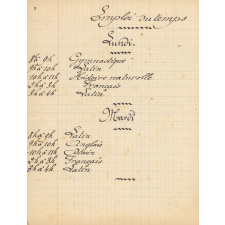 Emploi du temps
Lundi.
8h à 9h Gymnastique
9h à 10h Latin
10h à 11h Histoire naturelle
2h à 3h Français
3h à 4h Latin
Mardi
8h à 9h Latin
9h à 10h Anglais
10h à 11h Dessin
2h à 3h Français
3h à 4h Latin